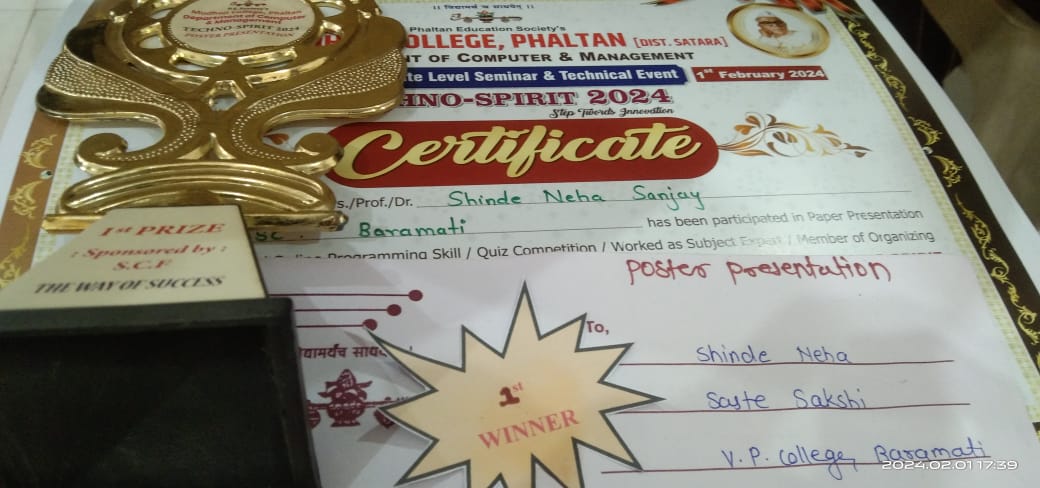 Mudhoji College, Phaltan
Department of Computer
& Management
TECHNO-SPIRIT 2024
POSTER PRESENTATION
1st PRIZE
: Sponsored by :
S.C.F
THE WAY OF SUCCESS
।। विद्यामर्यं च सायर्यम् ।।
Phaltan Education Society's
COLLEGE, PHALTAN [DIST. SATARA]
NT OF COMPUTER & MANAGEMENT
te Level Seminar & Technical Event 1st February 2024
HNO-SPIRIT 2024
Step Towards Innovation
Certificate
s./Prof./Dr. Shinde Neha Sanjay
sc. Baramati has been participated in Paper Presentation
Programming Skill / Quiz Competition / Worked as Subject Expert / Member of Organizing
Poster presentation
To,
Shinde Neha
Saste Sakshi
V. P. College, Baramati
1st
WINNER
2024.02.01 17:39